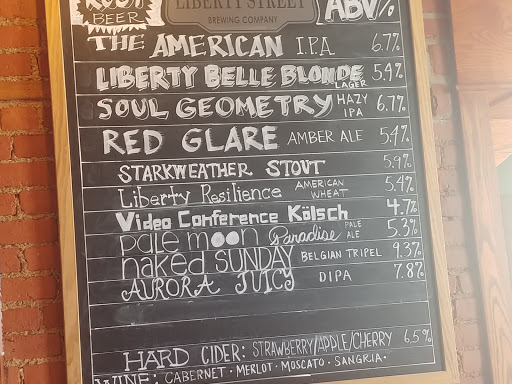 ROOT BEER
LIBERTY STREET
BREWING COMPANY
ABV%
THE AMERICAN I.P.A. 6.7%
LIBERTY BELLE BLONDE LAGER 5.4%
SOUL GEOMETRY HAZY IPA 6.7%
RED GLARE AMBER ALE 5.4%
STARKWEATHER STOUT 5.9%
Liberty Resilience AMERICAN WHEAT 5.4%
Video Conference Kölsch 4.7%
pale moon Paradise PALE ALE 5.3%
naked SUNDAY BELGIAN TRIPEL 9.37%
AURORA JUICY DIPA 7.8%
HARD CIDER: STRAWBERRY/APPLE/CHERRY 6.5%
WINE: CABERNET · MERLOT · MOSCATO · SANGRIA ·